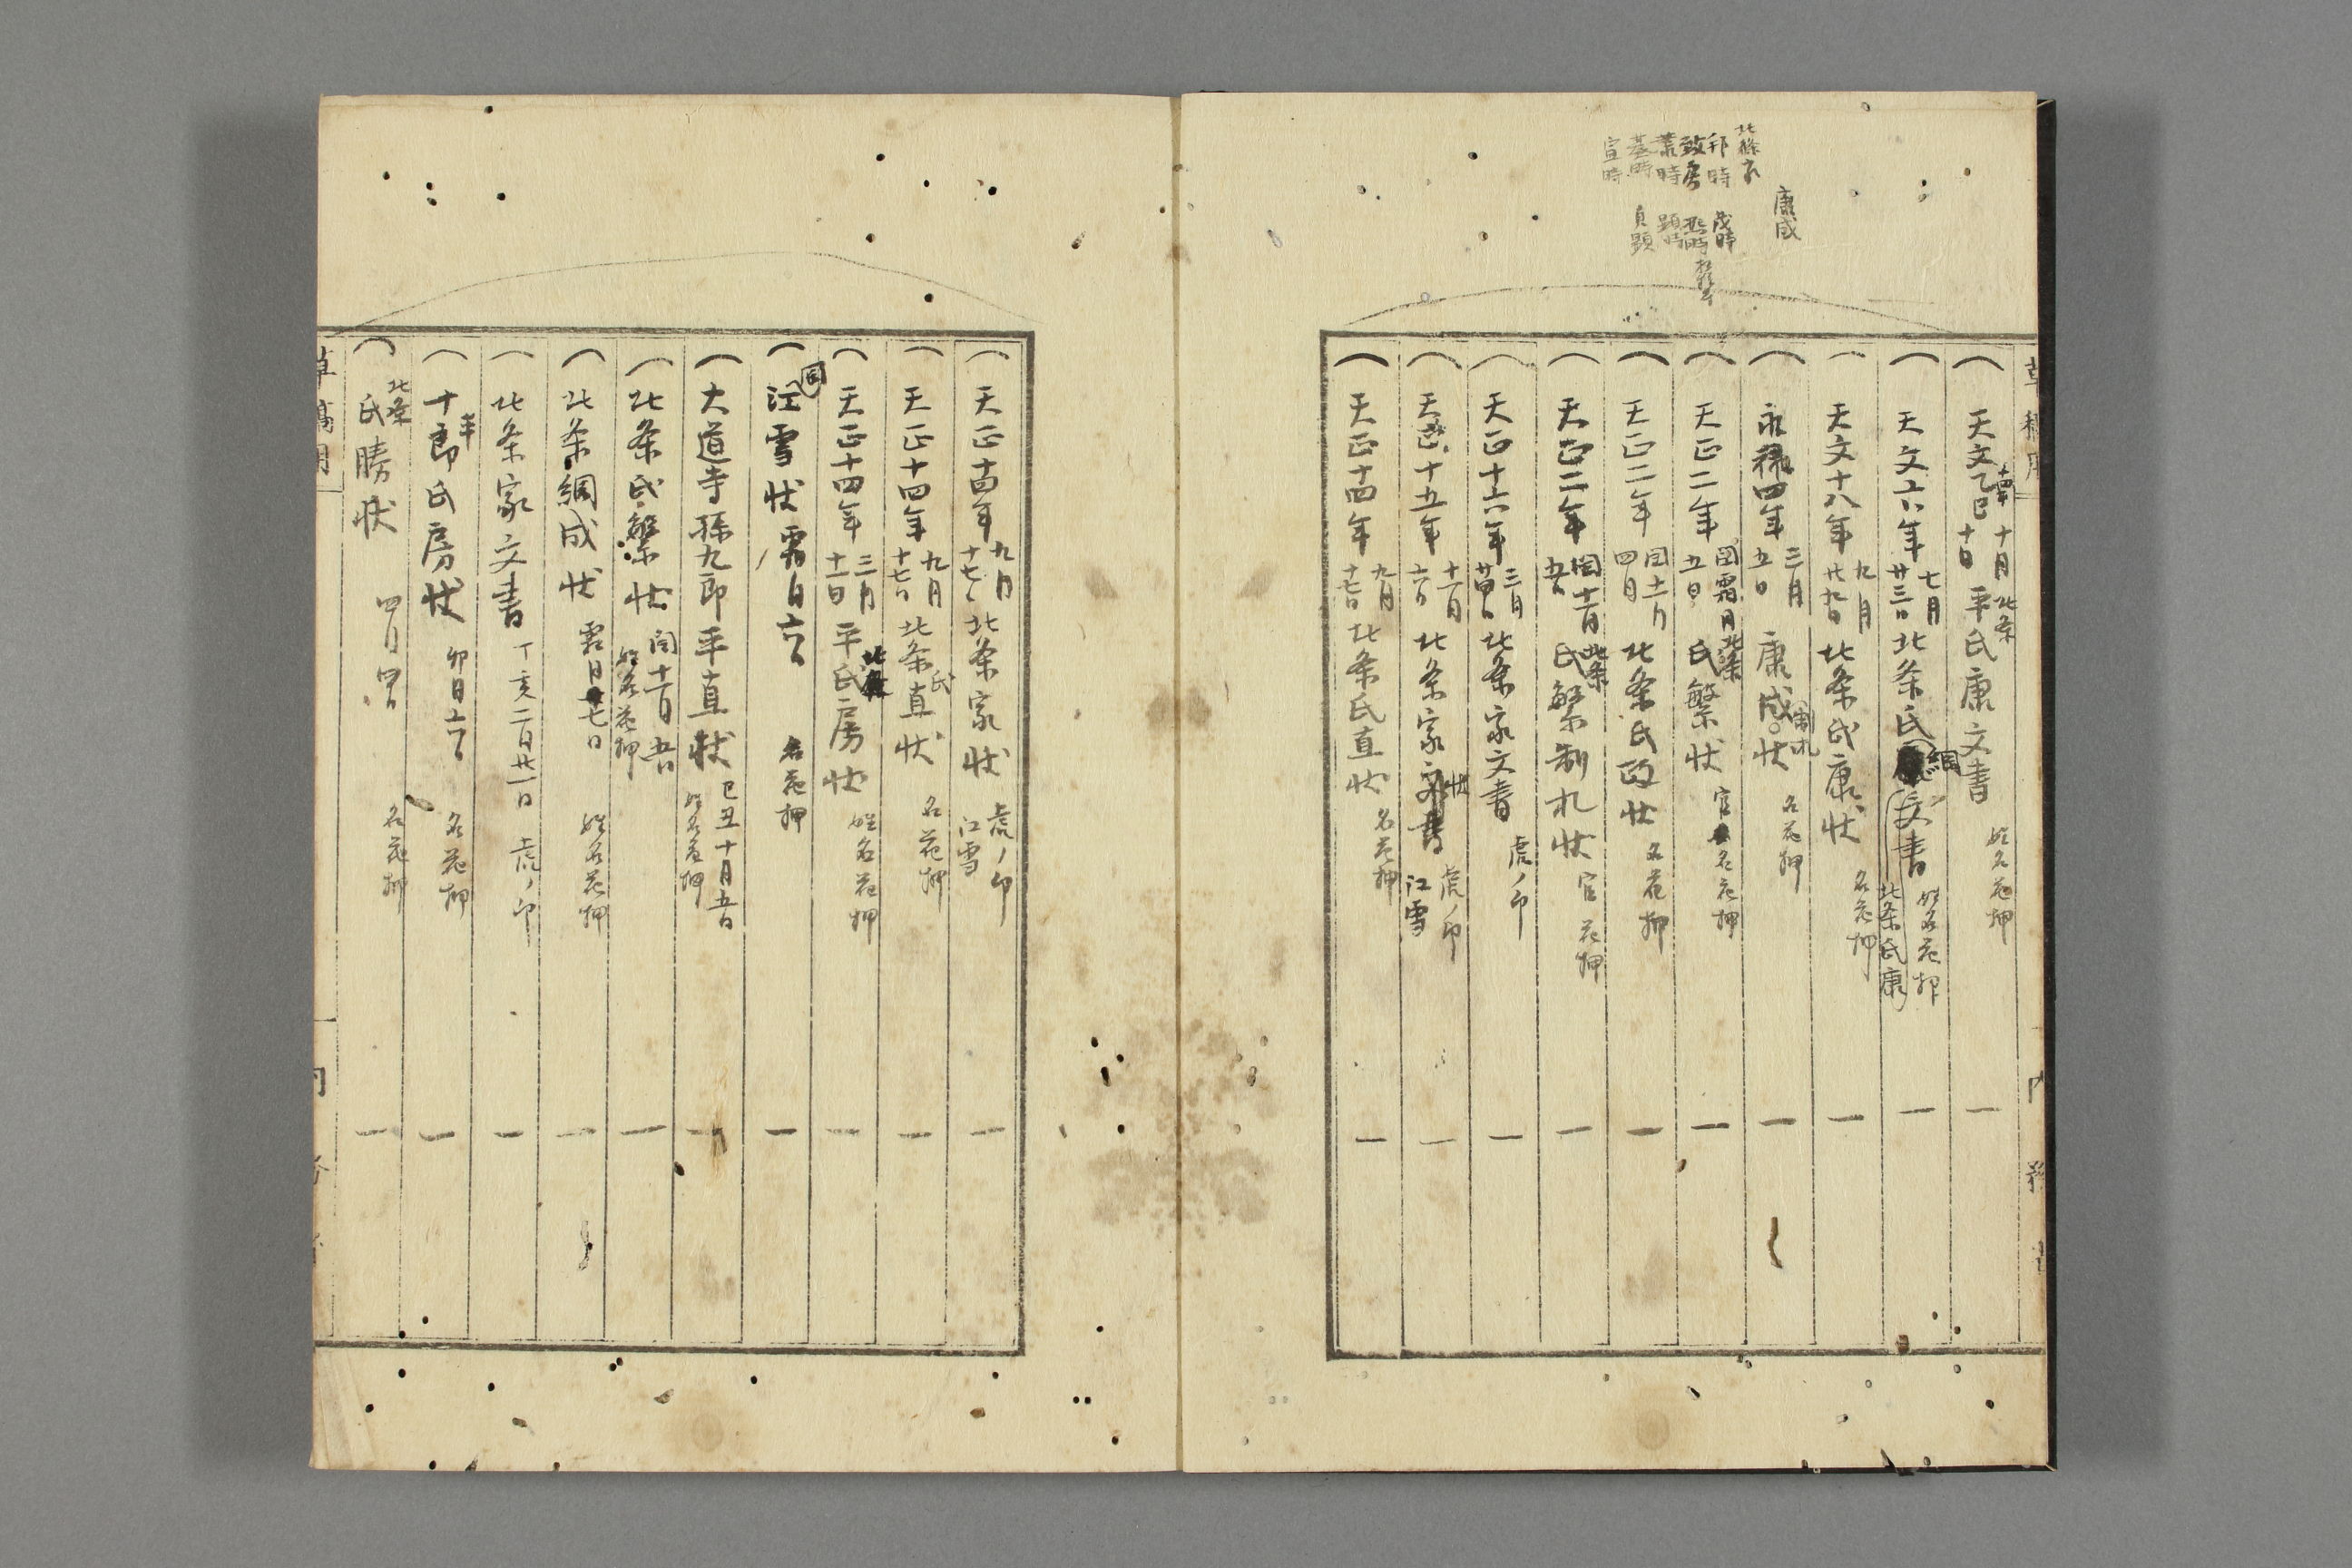 北條家
康成
邦時 茂時
時
基時 貞顕
宣時
天文乙巳十四年十月十日 北条平氏康文書 姓名花押 一
天文六年七月廿三日北条氏綱文書 姓名花押 北条氏康 一
天文十八年九月廿九日北条氏康状 名花押 一
永禄四年三月五日 康成制札状 名花押 一
天正二年閏霜月五日 北条氏繁状 官名花押 一
天正二年閏十一月四日 北条氏政状 名花押 一
天正二年閏十一月五日 北条氏繁制札状 官花押 一
天正十六年三月廿四日北条家文書 虎ノ印 一
天正十五年十一月六日 北条家状 虎ノ印 江雪 一
天正十四年九月十七日 北条氏直状 名花押 一
天正十四年九月十七日 北条家状 虎ノ印 江雪 一
天正十四年九月十七日 北条氏直状 名花押 一
天正十四年三月十一日 北條平氏房状 姓名花押 一
江雪状 霜月六日 名花押 一
大道寺孫九郎平直状 己丑十月五日 姓名花押 一
北条氏繁状 閏十一月五日 姓名花押 一
北条綱成状 霜月七日 姓名花押 一
北条家文書 丁亥二月廿一日 虎ノ印 一
十郎平氏房状 卯月六日 名花押 一
北条氏勝状 四月四日 名花押 一
草稿用
内務省